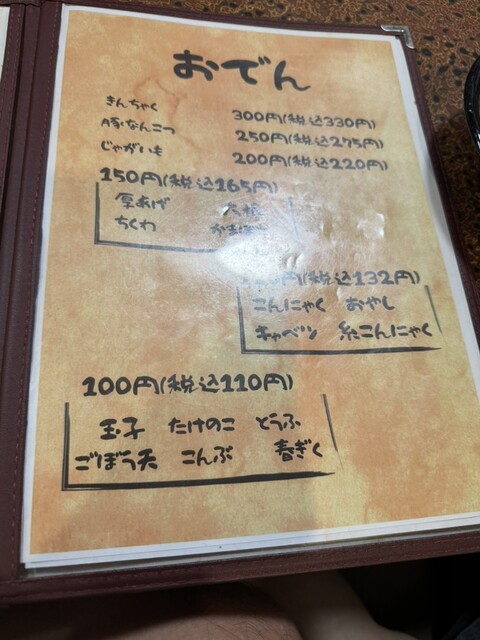 おでん
きんちゃく 300円(税込330円)
豚なんこつ 250円(税込275円)
じゃがいも 200円(税込220円)
150円(税込165円)
厚あげ 大根
ちくわ かまぼこ
円(税込132円)
こんにゃく おやし
キャベツ 糸こんにゃく
100円(税込110円)
玉子 たけのこ とうふ
ごぼう天 こんぶ 春ぎく